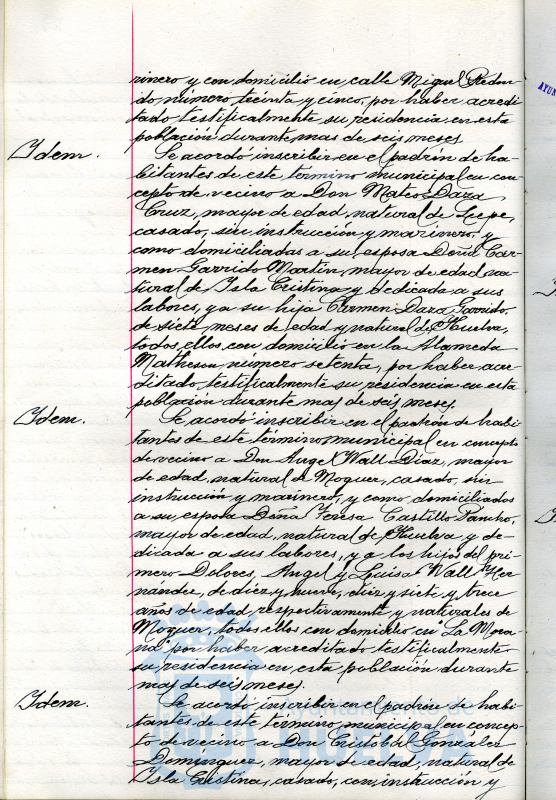 rinero y con domicilio en calle Miguel Redon-
do, número treinta y cinco, por haber acredi-
tado testificalmente su residencia en esta
población durante mas de seis meses.
Idem.
Se acordó inscribir en el padrón de ha-
bitantes de este término municipal en con-
cepto de vecino a Don Mateo Daza
Cruz, mayor de edad, natural de Lepe,
casado, sin instrucción y marinero, y
como domiciliadas a su esposa Doña Car-
men Garrido Martín, mayor de edad, na-
tural de Isla Cristina y dedicada a sus
labores, y a su hija Carmen Daza Garrido,
de siete meses de edad y natural de Huelva,
todos ellos con domicilio en la Alameda
Matheson, número setenta, por haber acre-
ditado testificalmente su residencia en esta
población durante mas de seis meses.
Idem.
Se acordó inscribir en el padrón de habi-
tantes de este término municipal en concepto
de vecino a Don Angel Wall Díaz, mayor
de edad, natural de Moguer, casado, sin
instrucción y marinero, y como domiciliados
a su esposa Doña Teresa Castillo Pancho,
mayor de edad, natural de Huelva y de-
dicada a sus labores, y a los hijos del pri-
mero Dolores, Angel y Luisa Wall Her-
nández, de diez y nueve, diez y siete y trece
años de edad respectivamente y naturales de
Moguer, todos ellos con domicilio en "La Mora-
na" por haber acreditado testificalmente
su residencia en esta población durante
mas de seis meses.
Idem.
Se acordó inscribir en el padrón de habi-
tantes de este término municipal en concep-
to de vecino a Don Cristobal González
Domínguez, mayor de edad, natural de
Isla Cristina, casado, con instrucción y
HUELVA
AYUN